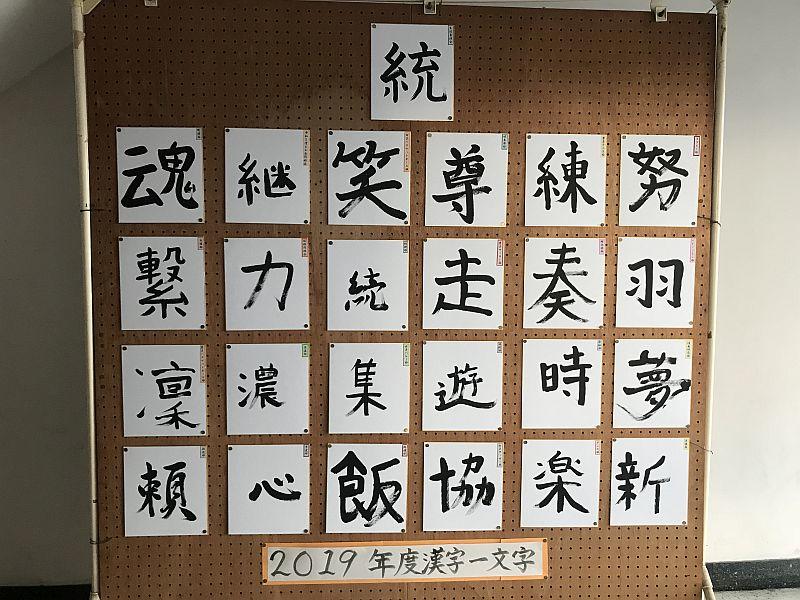 統
魂 継 笑 尊 練 努
繋 力 続 走 奏 羽
凜 濃 集 遊 時 夢
頼 心 飯 協 楽 新
2019年度漢字一文字